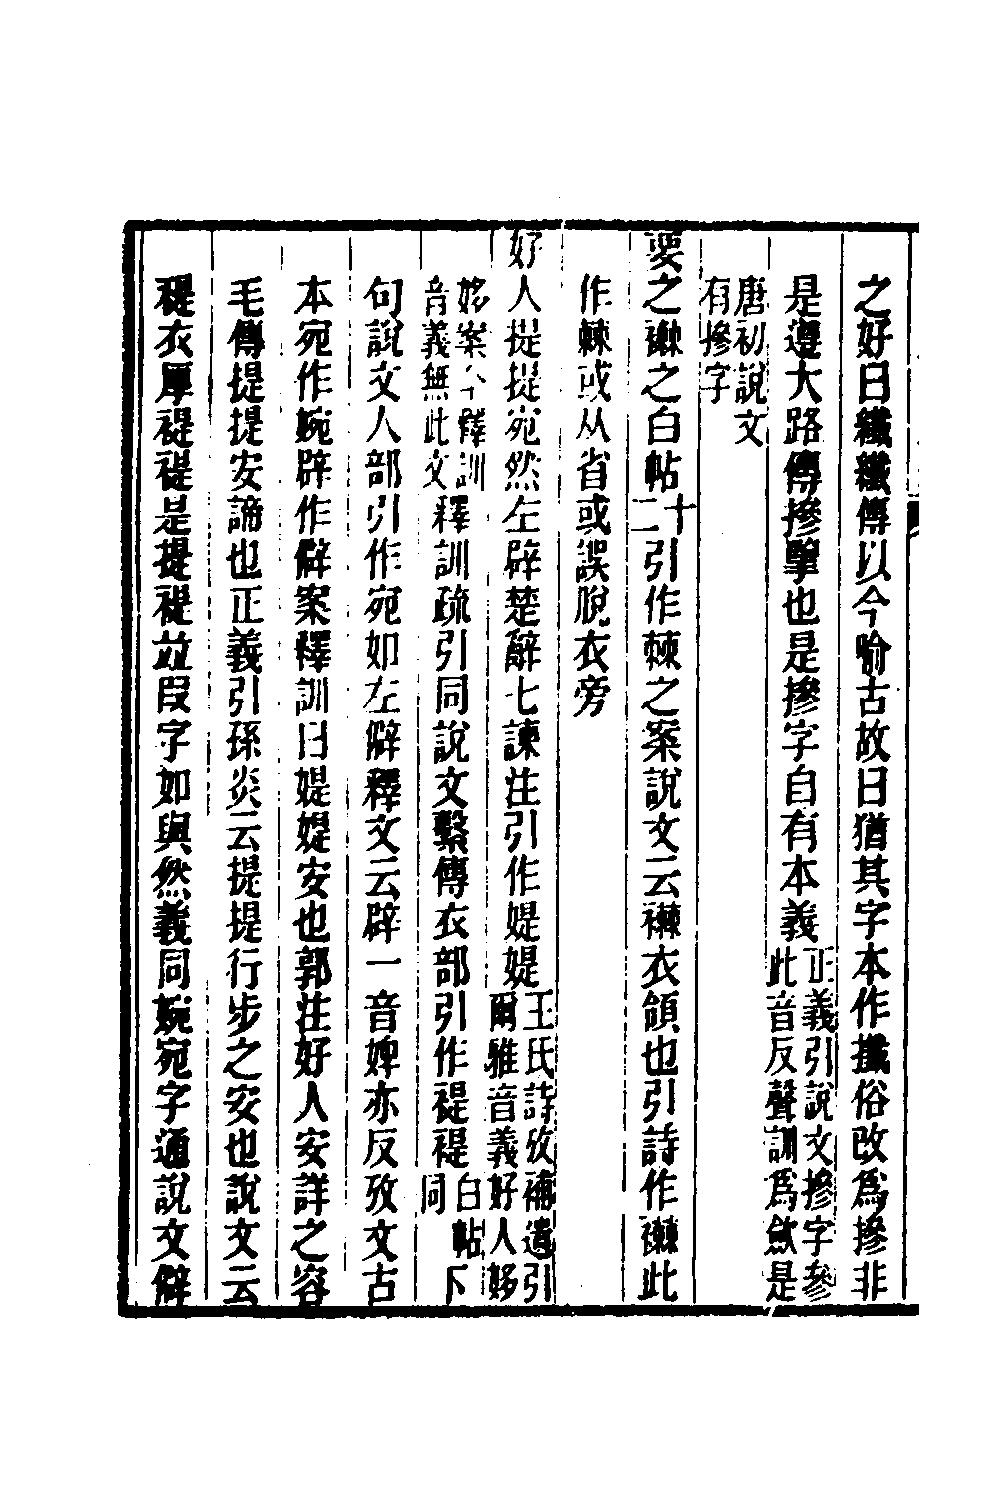 之好曰纖纖傳以今喻古故曰猶其字本作攕俗改爲摻非
是遵大路傳摻擥也是摻字自有本義正義引說文摻字參此音反聲訓爲斂是
唐初說文有摻字
要之襋之白帖十二引作棘之案說文云襋衣領也引詩作襋此
作棘或从省或誤脫衣旁
好人提提宛然左辟楚辭七諫注引作媞媞王氏詩攷補遺引爾雅音義好人姼
姼案今釋訓音義無此文釋訓疏引同說文繫傳衣部引作禔禔白帖下同
句說文人部引作宛如左僻釋文云辟一音婢亦反攷文古
本宛作婉辟作僻案釋訓曰媞媞安也郭注好人安詳之容
毛傳提提安諦也正義引孫炎云提提行步之安也說文云
褆衣厚褆褆是提褆竝叚字如與然義同婉宛字通說文僻